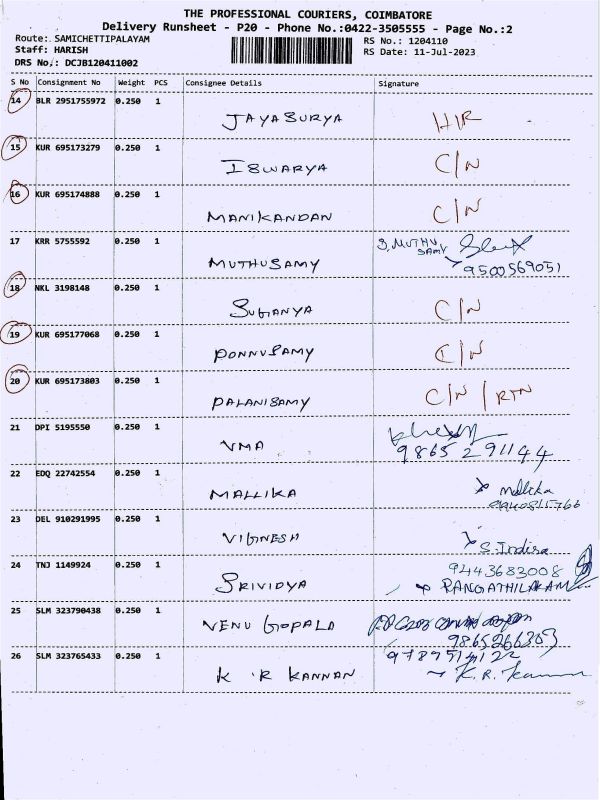 THE PROFESSIONAL COURIERS, COIMBATORE
Delivery Runsheet - P20 - Phone No.:0422-3505555 - Page No.:2
Route: SAMICHETTIPALAYAM RS No.: 1204110
Staff: HARISH RS Date: 11-Jul-2023
DRS No.: DCJB120411002
S No Consignment No Weight PCS Consignee Details Signature
14 BLR 2951755972 0.250 1 JAYASURYA H/R
15 KUR 695173279 0.250 1 ISWARYA C/N
16 KUR 695174888 0.250 1 MANIKANDAN C/N
17 KRR 5755592 0.250 1 MUTHUSAMY S. MUTHU SAMY
9500569051
18 NKL 3198148 0.250 1 SUGANYA C/N
19 KUR 695177068 0.250 1 PONNUSAMY C/N
20 KUR 695173803 0.250 1 PALANISAMY C/N / RTN
21 DPI 5195550 0.250 1 UMA
9865291144
22 EDQ 22742554 0.250 1 MALLIKA Mallika
23 DEL 910291995 0.250 1 VIGNESH S. Indira
24 TNJ 1149924 0.250 1 SRIVIDYA 9443683008
RANGATHILAKAM
25 SLM 323790438 0.250 1 VENU GOPALA
9865266303
26 SLM 323765433 0.250 1 K R KANNAN 9789514122
K. R. Kannan